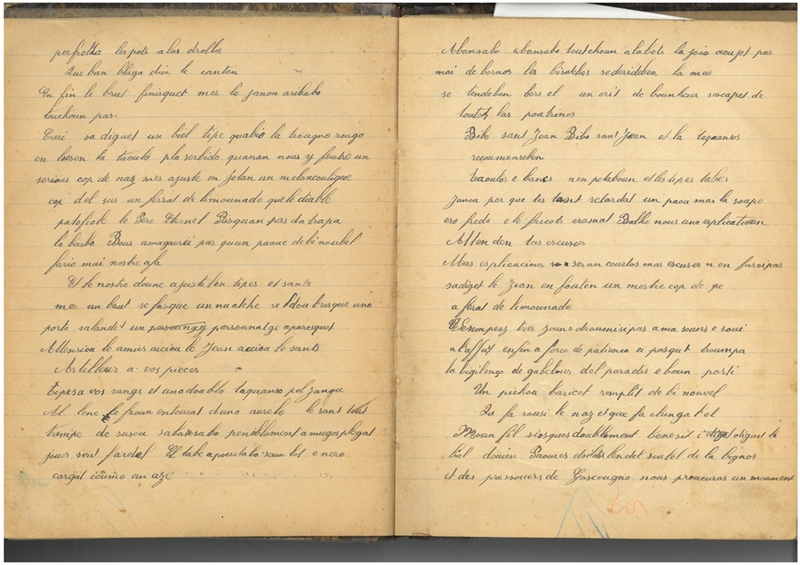 perfretta lespots a las drollos
Que ban blaga din le cantou
En fin le brut finisquet mes le Janou aribabo
touchoun pas.
Cresi sa diguet un biel tipe quabio la trougno rougo
en loesen la taoulo pla serbido quanan nous y foutre un
serious cop de naz mes ajusté en jetan un melancouligue
cop d'el sus un ferrat de limounado que le diable
patafiole le Pere Eternel Pusquan pas da trapa
la barbo Bous amagrerei pas quun paouc de bi noubel
fario mai nostre afa
Et le nostre dounc ajustefen tipes et sants
mes un brut se fasque un nuatche se l'dou brusque uno
porto salandet un persounatge aparesquet
Attensiou le amir aciou le Jean aciou le sants
Artilleur a vos pieces
tipes a vos rangs et uno doublo taguanso pel Janou
Al lenc le froun entourat d'uno aurelo le sant tout
trempe de susou sabansabo peniblement amagos plegat
jous soun fardel El labe apoulabo soun bot e nero
cargat coumo un aze
Abansabo abansabo toutchoun alabets la joio aoujet pas
mai de bornos las bisatches sederideben la mas
se tendeben bers el un crit de bounheur sescapet de
toutos las poutrinos
Bibo sant Jean Bibo sant Jean et la taguansos
recoumenseben
taoulos e bancs n en petaboun et les tipes tabes
Janou per que tes tant retardat un paou mai la soupo
ero fredo e le fricots cramat Bailho nous uno esplicatioun
Atten den tas escusos
Mas esplicacious seran courtos mas escuses n en farei pas
sadiget le Jean en fouten un mestre cop de pe
a ferat de limounado
Desempers tres jouns droumiri pas a ma souers e soui
a l'affut enfin a forço de patienço ei pasgut troumpa
la bigilenço de gabelous del paradis e boun porti
Un pichou baricot ramplit de bi nouvel
Qu fa rousi le naz et que fa clunga l'el
Moun fil siosques doublement benesit diguet le
biel doaien Paoures desolens del soulel de la bignos
et des pressouers de Gascougno nous proucuras un moument